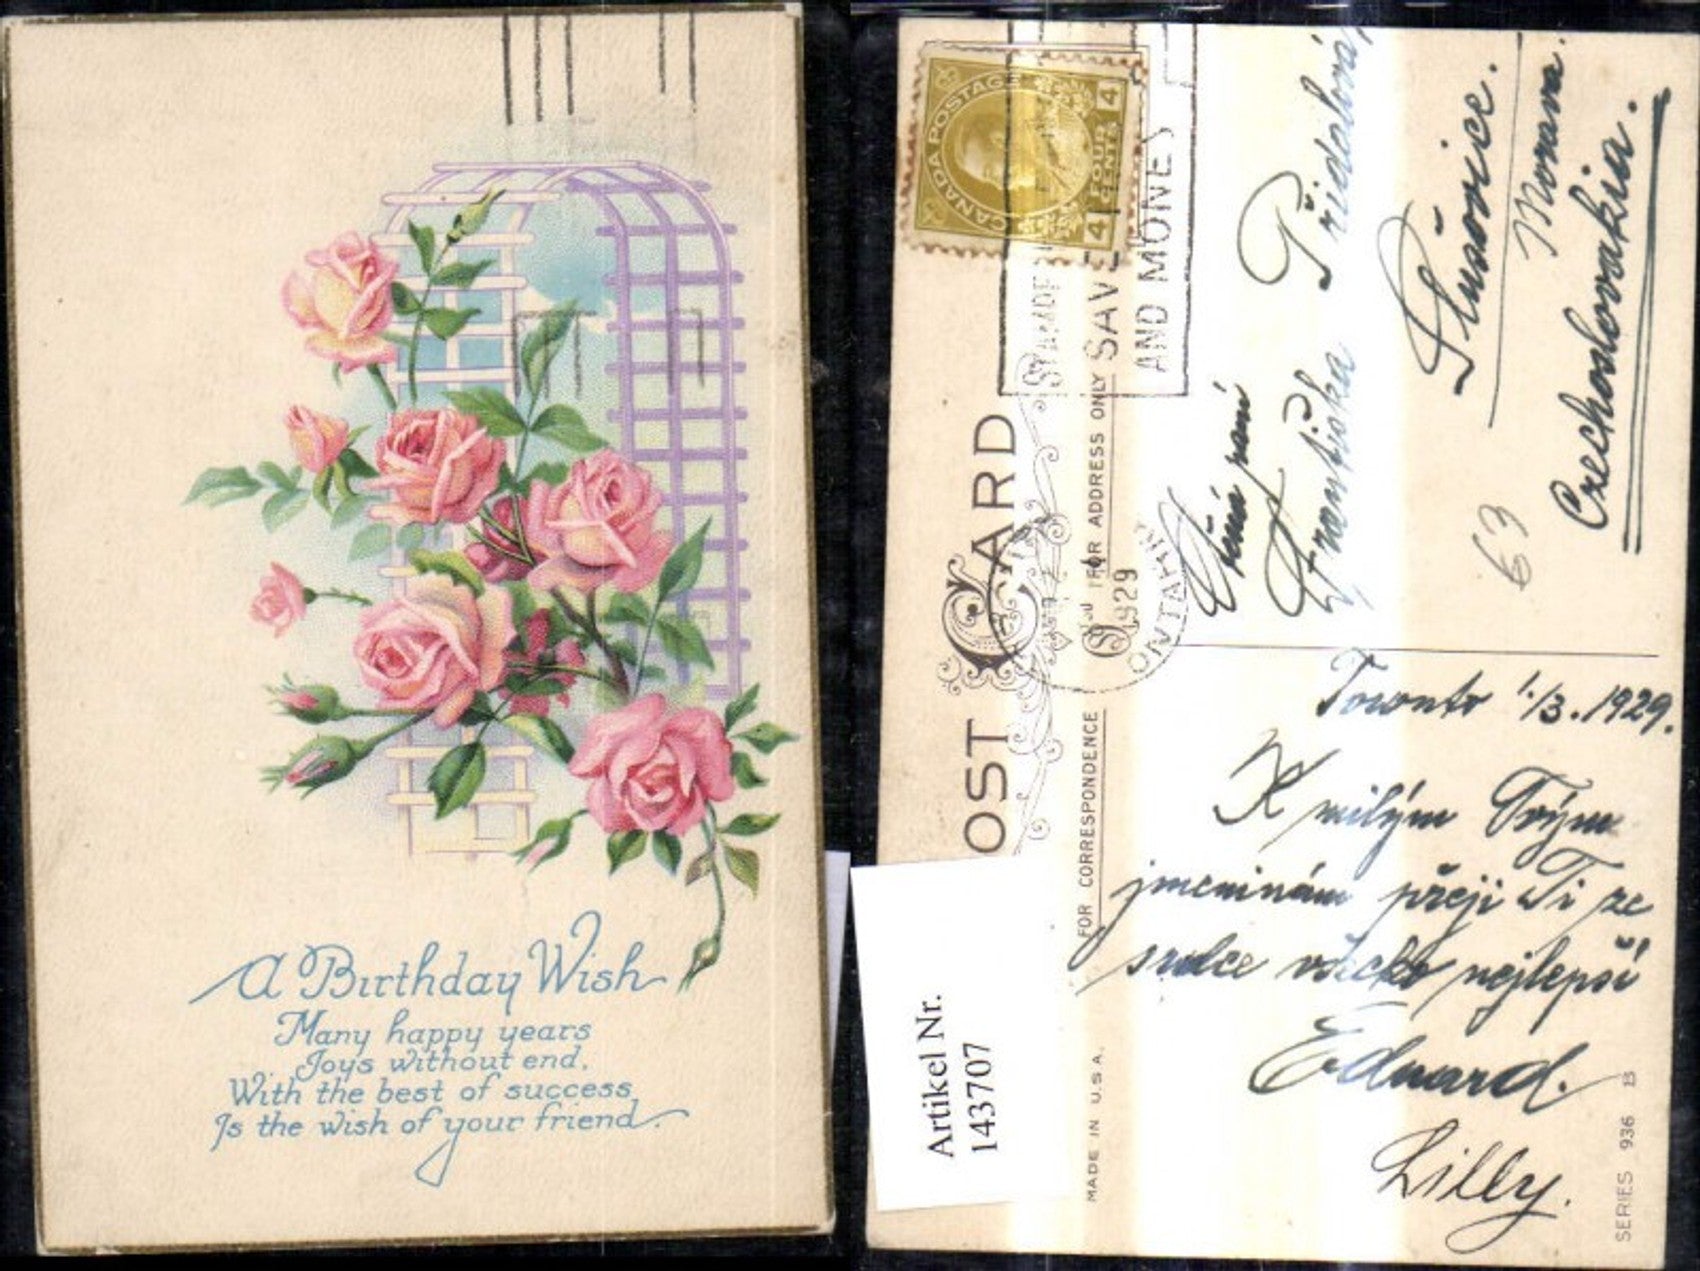 A Birthday Wish
Many happy years
Joys without end,
With the best of success
Is the wish of your friend.
CANADA POSTAGE
4 FOUR CENTS 4
SAVE
AND MONEY
1929
ONTARIO
POST CARD
FOR CORRESPONDENCE
FOR ADDRESS ONLY
Ctěná paní
Františka Přidalová
Slušovice.
Morava.
Czechoslovakia.
63
Toronto 1./3. 1929.
K milým Tvým
jmeninám přeji Ti ze
srdce všecko nejlepší
Eduard.
Lilly.
MADE IN U.S.A.
SERIES 936 B
Artikel Nr.
143707